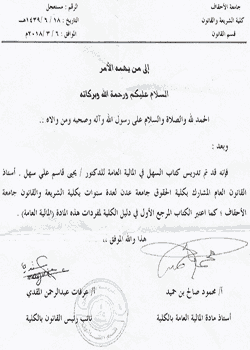 جامعة الأحقاف
كلية الشريعة والقانون
قسم القانون
الرقم : مستعجل
التاريخ : ١٨ / ٦ / ١٤٣٩هـ
الموافق : ٦ / ٣ / ٢٠١٨م
إلى من يهمه الأمر
السلام عليكم ورحمة الله وبركاته
الحمد لله والصلاة والسلام على رسول الله وآله وصحبه ومن والاه :
وبعد :
فإنه قد تم تدريس كتاب السهل في المالية العامة للدكتور / يحيى قاسم علي سهل . أستاذ
القانون العام المشارك بكلية الحقوق جامعة عدن لعدة سنوات بكلية الشريعة والقانون جامعة
الأحقاف ؛ كما اعتبر الكتاب المرجع الأول في دليل الكلية لمفردات هذه المادة (المالية العامة) .
هذا والله الموفق ،،
أ/ محمود صالح بن حميد
أستاذ مادة المالية العامة بالكلية
أ/ عرفات عبدالرحمن المقدي
نائب رئيس القانون بالكلية